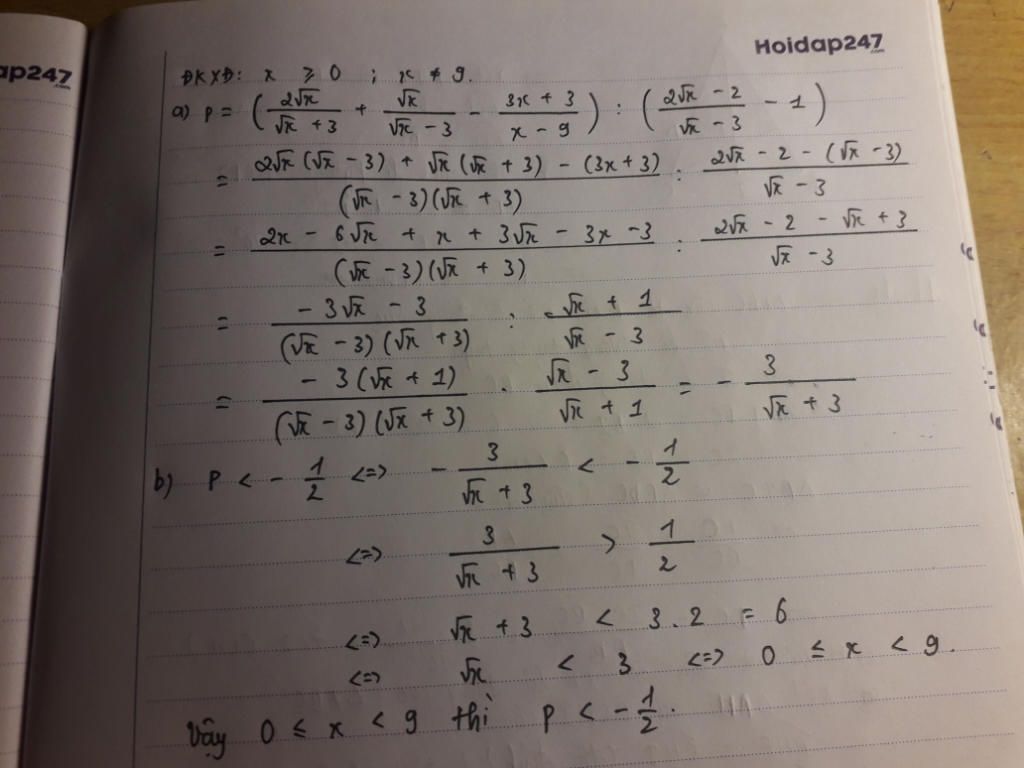 Hoidap247
.com
ap247
.com
ĐKXĐ: x ≥ 0 ; x ≠ 9.
a) P = (2√x / (√x + 3) + √x / (√x - 3) - (3x + 3) / (x - 9)) : ((2√x - 2) / (√x - 3) - 1)
= (2√x (√x - 3) + √x (√x + 3) - (3x + 3)) / ((√x - 3)(√x + 3)) : (2√x - 2 - (√x - 3)) / (√x - 3)
= (2x - 6√x + x + 3√x - 3x - 3) / ((√x - 3)(√x + 3)) : (2√x - 2 - √x + 3) / (√x - 3)
= (- 3√x - 3) / ((√x - 3)(√x + 3)) : (√x + 1) / (√x - 3)
= (- 3(√x + 1)) / ((√x - 3)(√x + 3)) . (√x - 3) / (√x + 1) = - 3 / (√x + 3)
b) P < - 1/2 <=> - 3 / (√x + 3) < - 1/2
<=> 3 / (√x + 3) > 1/2
<=> √x + 3 < 3.2 = 6
<=> √x < 3 <=> 0 ≤ x < 9.
Vậy 0 ≤ x < 9 thì P < - 1/2.